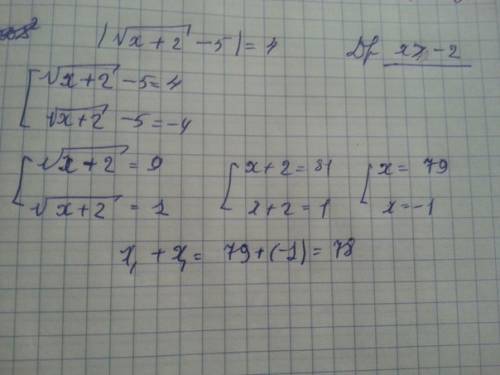 |√x+2 - 5| = 4    Df x ≥ -2
[ √x+2 - 5 = 4
√x+2 - 5 = -4
[ √x+2 = 9    [ x+2 = 81    [ x = 79
√x+2 = 1    x+2 = 1    x = -1
x₁ + x₁ = 79 + (-1) = 78